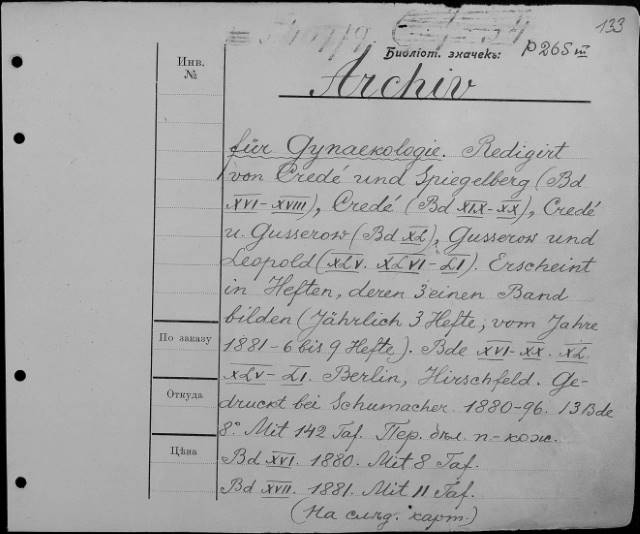 133
Инв. №
Библіот. значекъ: P 265 III
Archiv
für Gynaekologie. Redigirt
von Credé und Spiegelberg (Bd
XVI-XVIII), Credé (Bd XIX-XX), Credé
u. Gusserow (Bd XL), Gusserow und
Leopold (XLV. XLVI-LI). Erscheint
in Heften, deren 3 einen Band
bilden (Jährlich 3 Hefte, vom Jahre
По заказу
1881-6 bis 9 Hefte). Bde XVI-XX. XL
XLV-LI. Berlin, Hirschfeld. Ge-
Откуда
druckt bei Schumacher. 1880-96. 13 Bde
8° Mit 142 Taf. Пер. бѣл. п-кож.
Цѣна
Bd XVI. 1880. Mit 8 Taf.
Bd XVII. 1881. Mit 11 Taf.
(На слѣд. карт.)